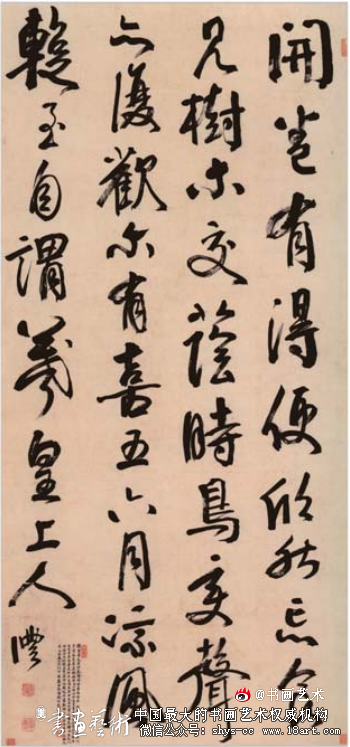 開卷有得便欣然忘食
見樹木交蔭時鳥變聲
亦復歡尔有喜五六月涼風
暫至自謂羲皇上人
@书画艺术
書畫藝術
中国最大的书画艺术权威机构
微信公众号：shys-cc www.18art.com